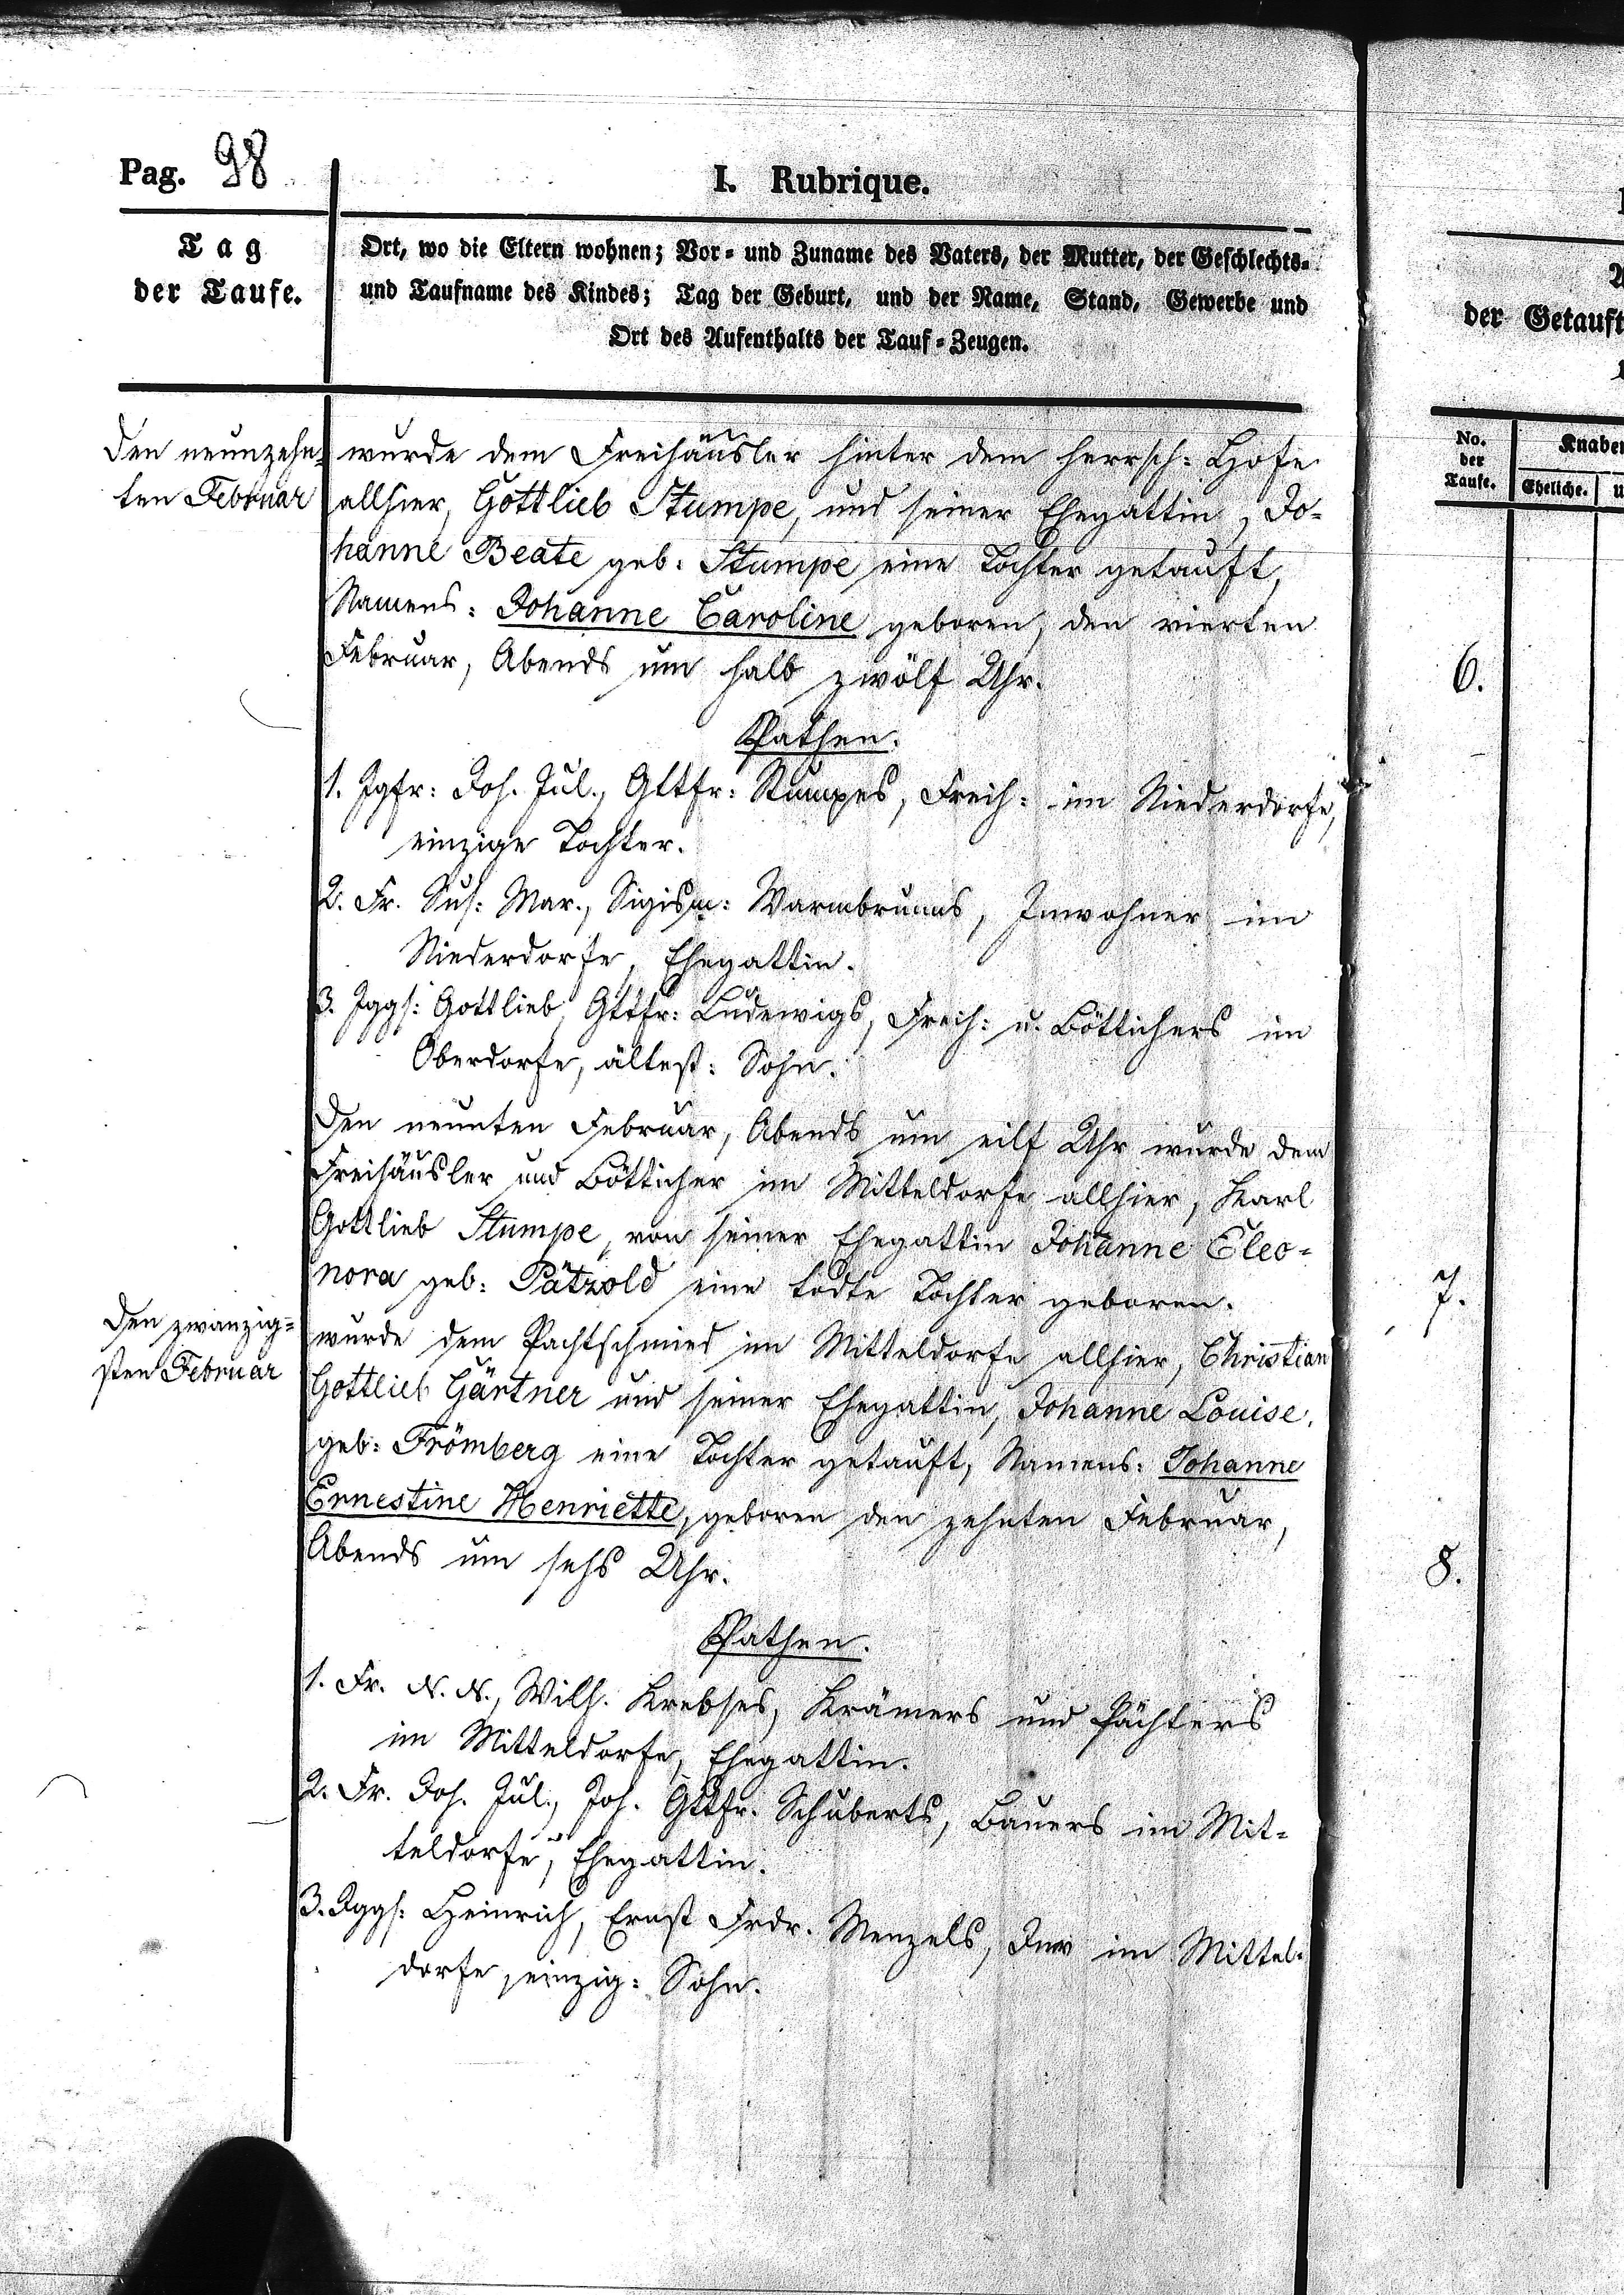 Pag. 98
I. Rubrique.
Tag
der Taufe.
Ort, wo die Eltern wohnen; Vor- und Zuname des Vaters, der Mutter, der Geschlechts-
und Taufname des Kindes; Tag der Geburt, und der Name, Stand, Gewerbe und
Ort des Aufenthalts der Tauf-Zeugen.
der Getauft
No.
der
Taufe.
Knaben
Eheliche.
Den neunzehn-
ten Februar
wurde dem Freihäusler hinter dem herrsch: Hofe
allhier, Gottlieb Stumpe, und seiner Ehegattin, Jo-
hanne Beate geb: Stumpe eine Tochter getauft,
Namens: Johanne Caroline geboren, den vierten
Februar, Abends um halb zwölf Uhr.
6.
Pathen.
1. Jgfr: Joh. Jul., Gttfr: Stumpes, Freih: im Niederdorfe,
einzige Tochter.
2. Fr. Sus: Mar., Sigism: Warmbrunns, Inwohner im
Niederdorfe, Ehegattin.
3. Jggs: Gottlieb, Gttfr: Ludewigs, Freih: u. Böttichers im
Oberdorfe, ältest: Sohn.
Den neunten Februar, Abends um eilf Uhr wurde dem
Freihäusler und Bötticher im Mitteldorfe allhier, Karl
Gottlieb Stumpe, von seiner Ehegattin Johanne Eleo-
nora geb: Pätzold eine todte Tochter geboren.
7.
Den zwanzig-
sten Februar
wurde dem Pachtschmied im Mitteldorfe allhier, Christian
Gottlieb Gärtner und seiner Ehegattin, Johanne Louise,
geb: Frömberg eine Tochter getauft, Namens: Johanne
Ernestine Henriette, geboren den zehnten Februar,
Abends um sechs Uhr.
8.
Pathen.
1. Fr. N. N., Wilh. Krebses, Krämers und Pächters
im Mitteldorfe, Ehegattin.
2. Fr. Joh. Jul., Joh. Gttfr. Schuberts, Bauers im Mit-
teldorfe, Ehegattin.
3. Jggs: Heinrich, Ernst Frdr. Menzels, Inw im Mittel-
dorfe, einzig: Sohn.